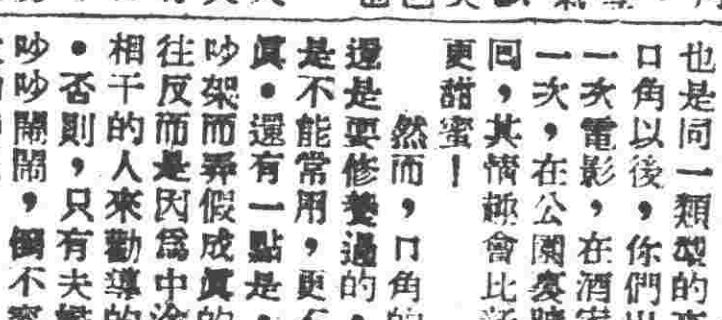 也是同一類型的
口角以後，你們出
一次電影，在酒家
一次，在公園宴
回，其情趣會比新
更甜蜜！
然而，口角的
還是要修養過的，
是不能常用，更不
眞・還有一點是，
吵架而弄假成眞的
往反而是因爲中途
相干的人來勸導的
・否則，只有夫
吵吵鬧鬧，倒不